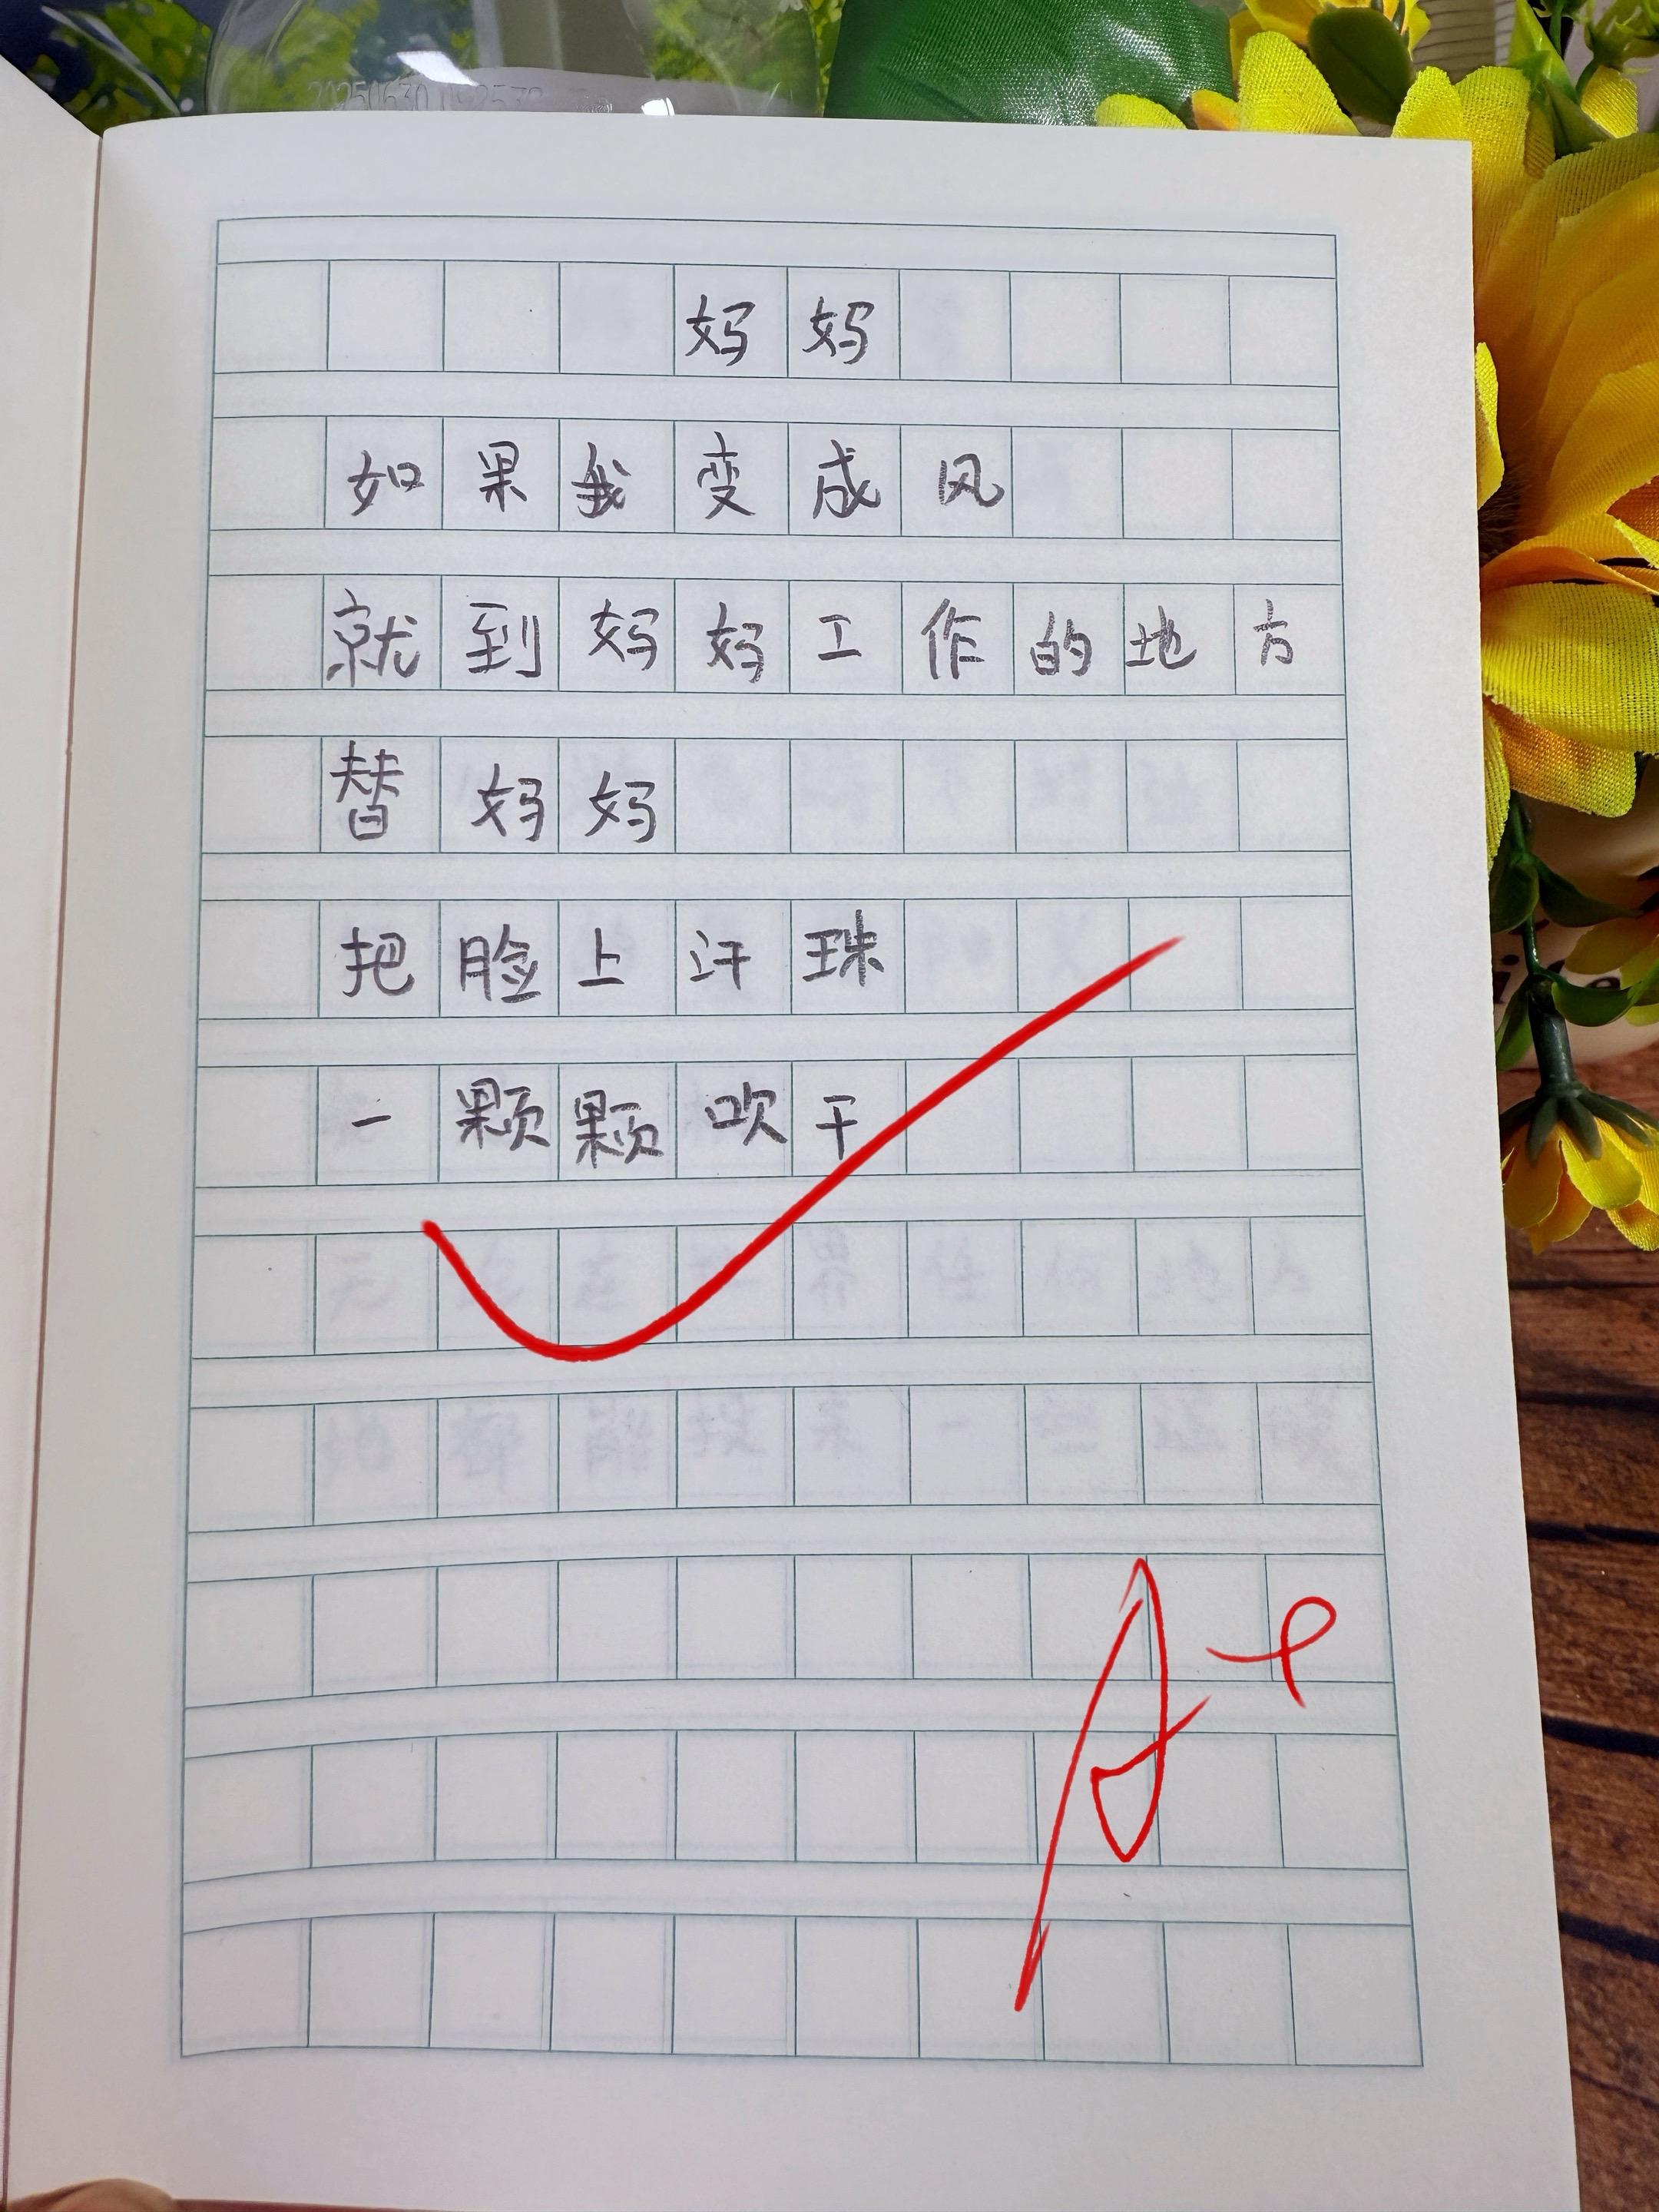 妈妈
如果我变成风
就到妈妈工作的地方
替妈妈
把脸上汗珠
一颗颗吹干
A+